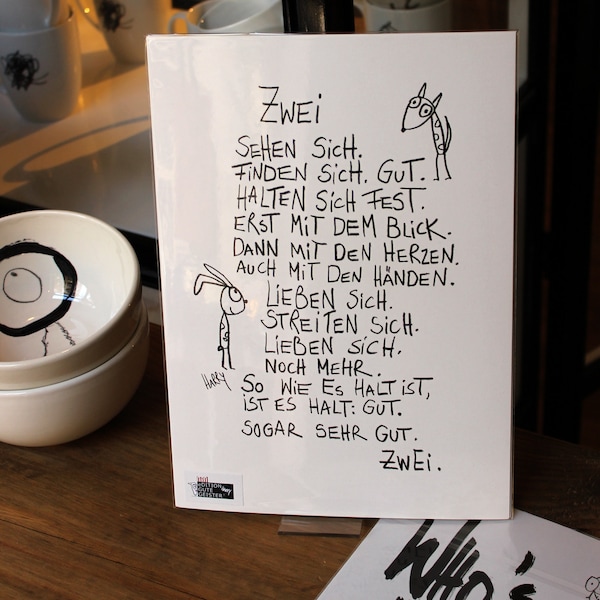 ZWEI
SEHEN SICH.
FINDEN SICH. GUT.
HALTEN SICH FEST.
ERST MIT DEM BLICK.
DANN MIT DEN HERZEN.
AUCH MIT DEN HÄNDEN.
LIEBEN SICH.
STREITEN SICH.
LIEBEN SICH.
NOCH MEHR.
HARRY
SO WIE ES HALT IST,
IST ES HALT: GUT.
SOGAR SEHR GUT.
ZWEI.
EDITION
GUTE
GEISTER
WHO'S